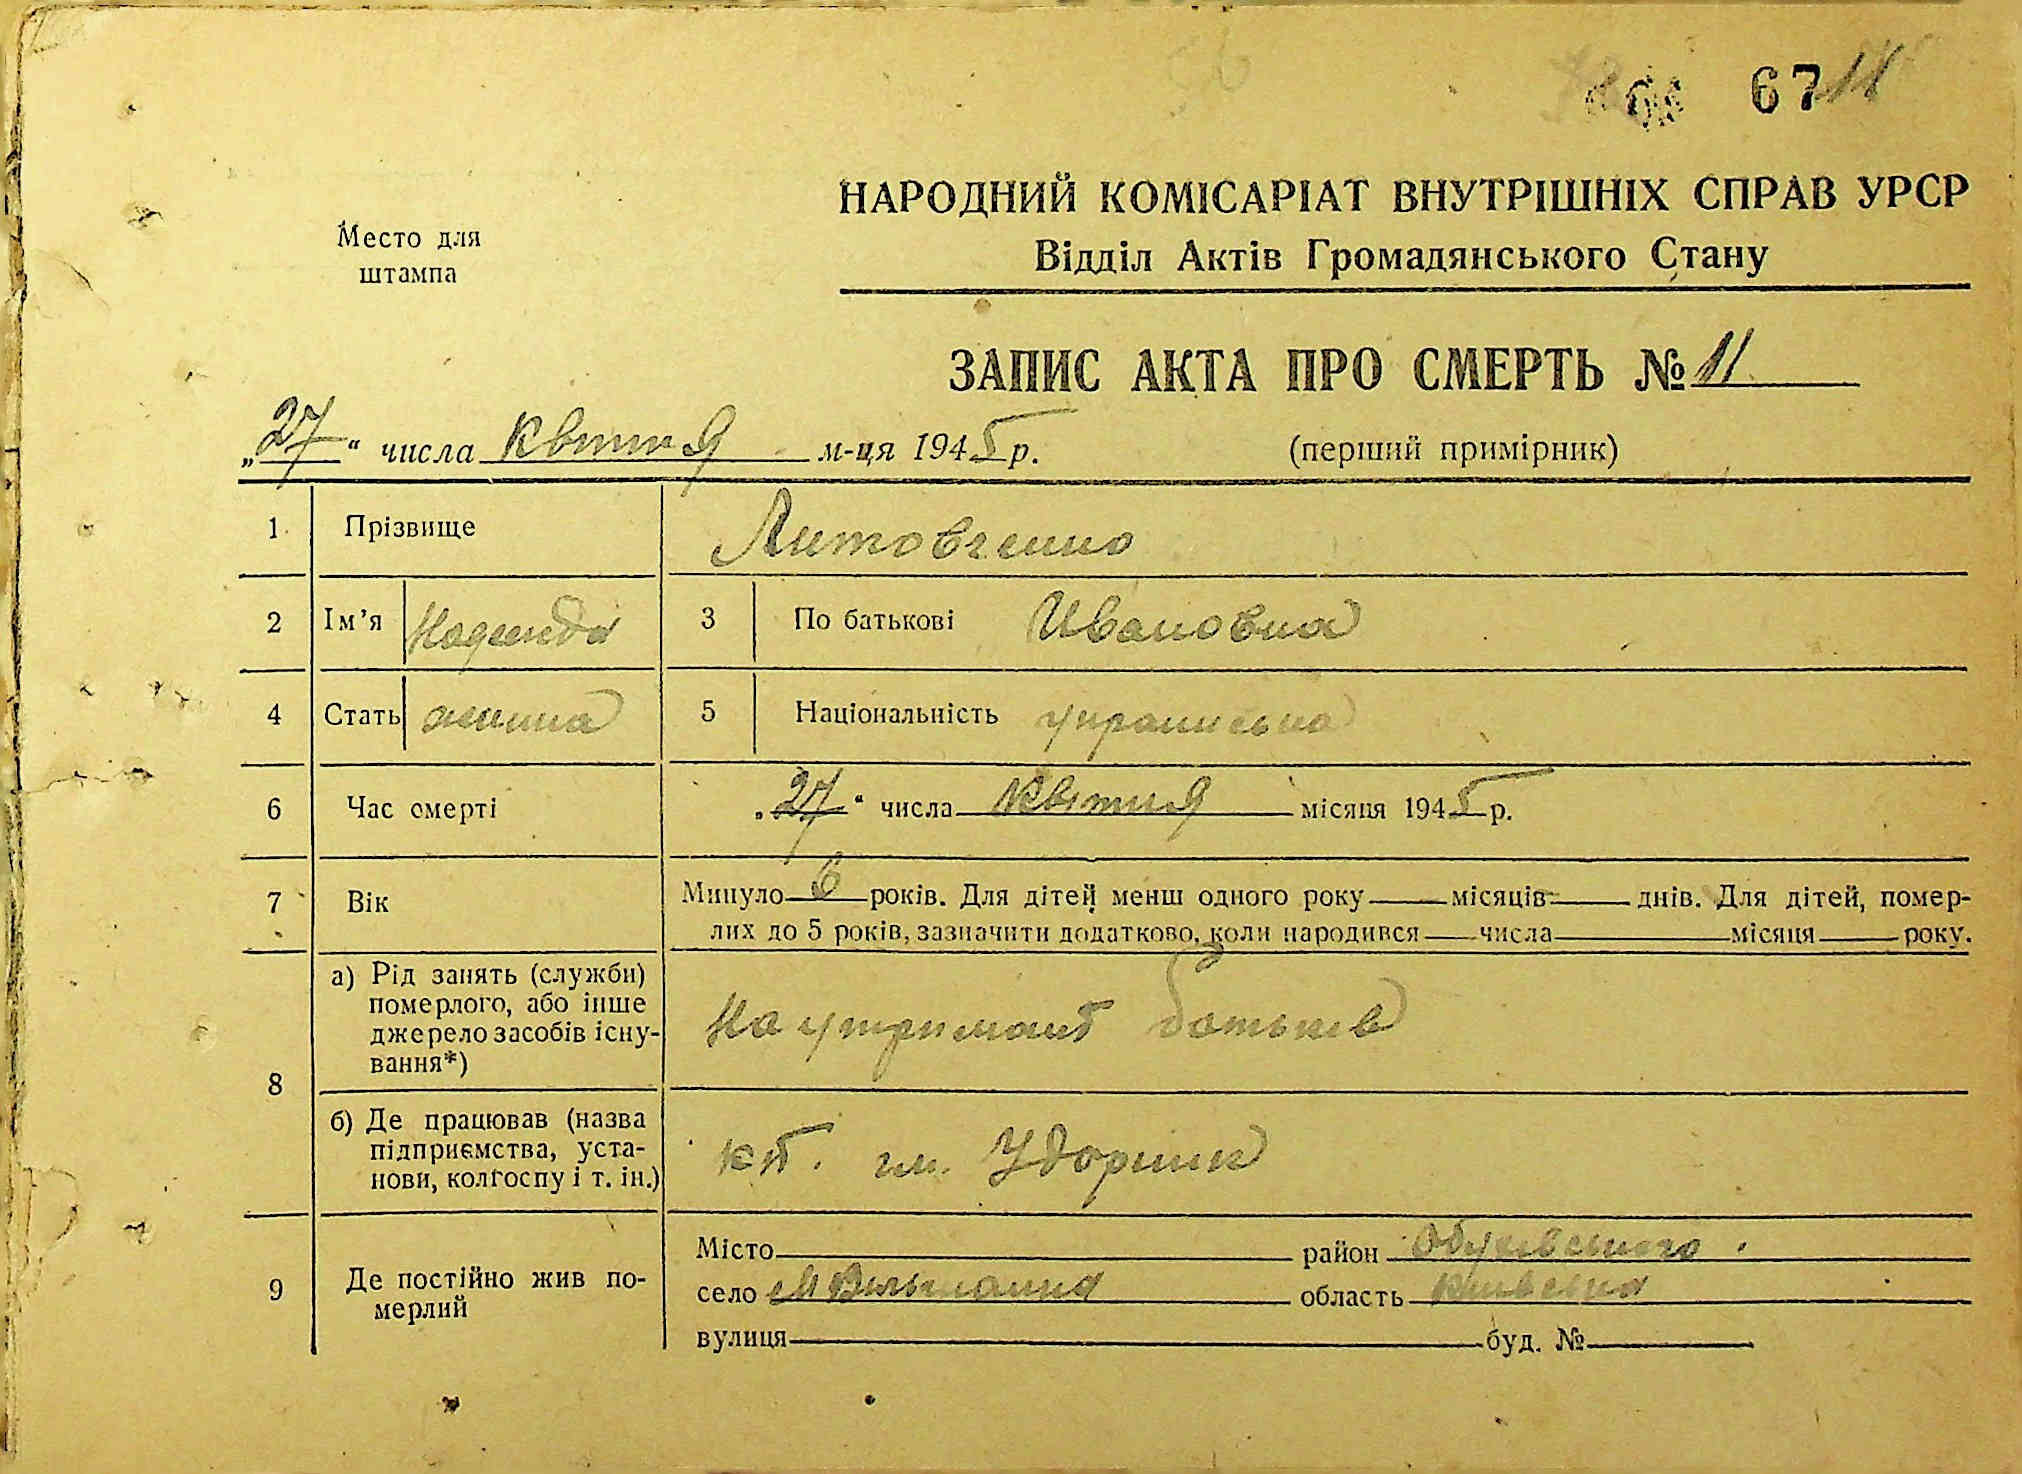 67 11
НАРОДНИЙ КОМІСАРІАТ ВНУТРІШНІХ СПРАВ УРСР
Место для
штампа
Відділ Актів Громадянського Стану
ЗАПИС АКТА ПРО СМЕРТЬ № 11
„27“ числа квітня м-ця 1945 р. (перший примірник)
1 Прізвище Литовченко
2 Ім’я Надежда 3 По батькові Ивановна
4 Стать жіноча 5 Національність українська
6 Час смерті „27“ числа квітня місяця 1945 р.
7 Вік Минуло 6 років. Для дітей менш одного року — місяців — днів. Для дітей, помер-
лих до 5 років, зазначити додатково, коли народився — числа — місяця — року.
8 а) Рід занять (служби)
померлого, або інше
джерело засобів існу-
вання*)
На утриманї батьків
б) Де працював (назва
підприємства, уста-
нови, колгоспу і т. ін.)
им. Ударник
9 Де постійно жив по-
мерлий
Місто район Обухівського
село М Вільшанка область Київська
вулиця буд. №